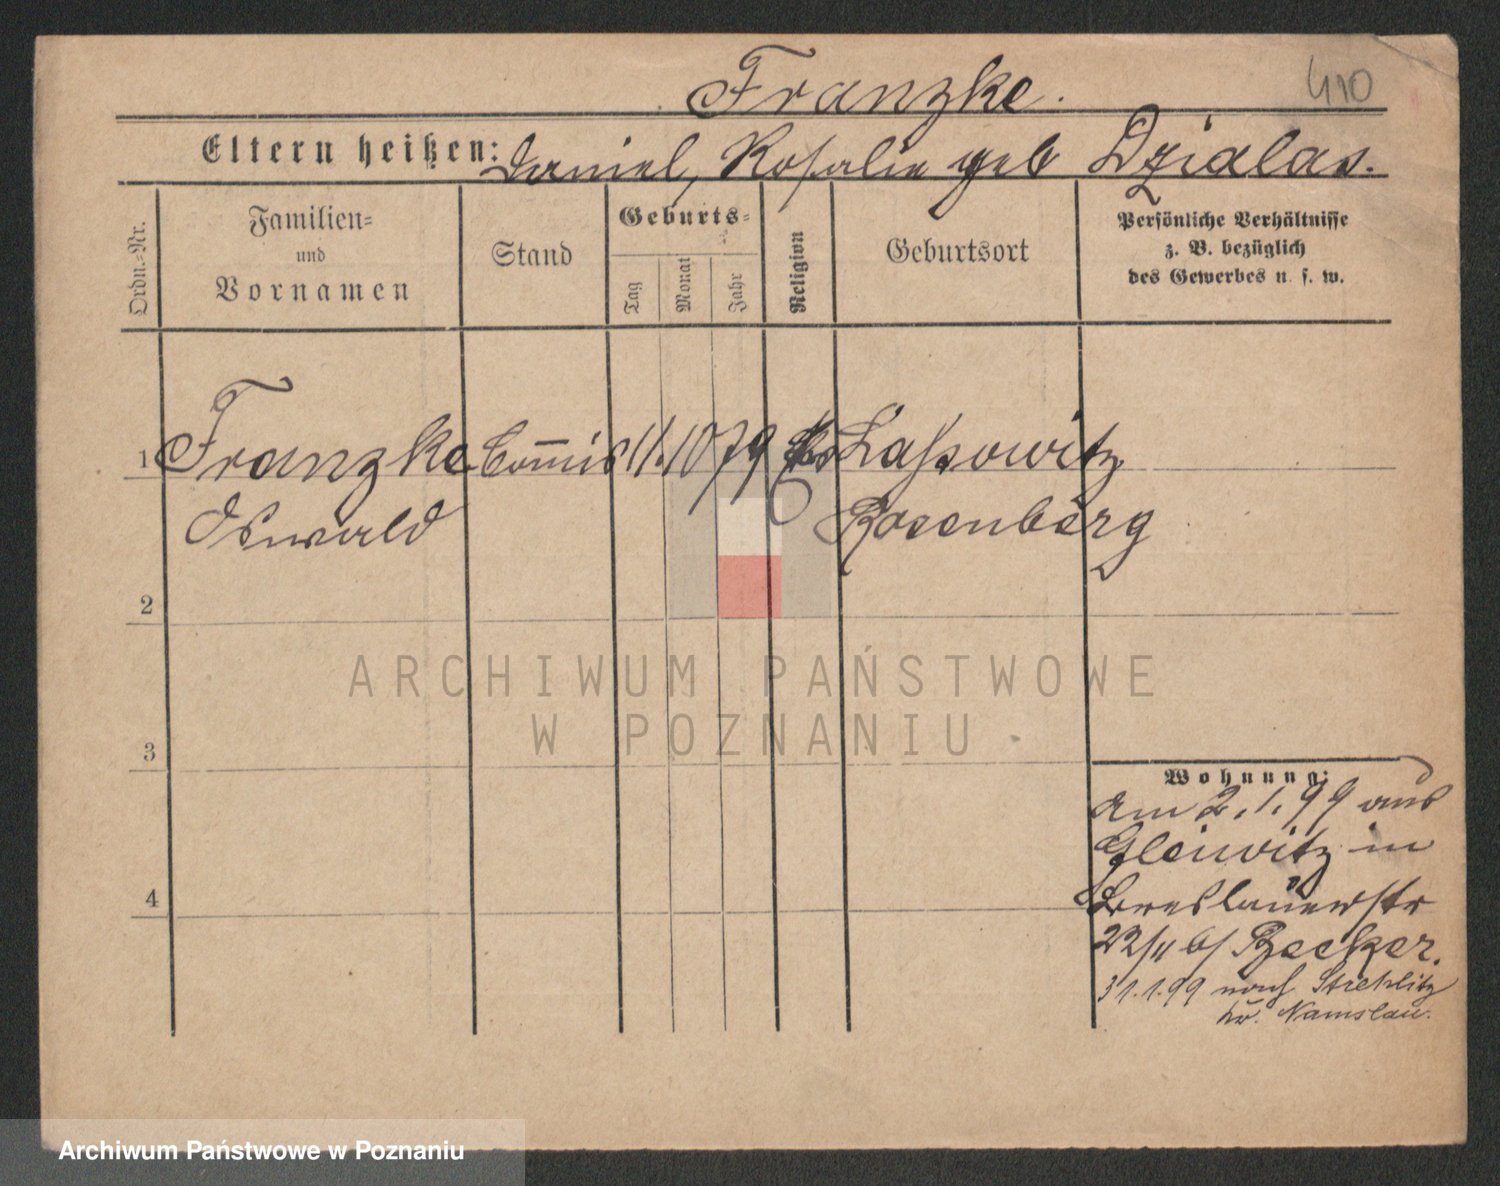 Franzke.
410
Eltern heißen: Daniel, Rosalie geb Dzialas.
Ordn.-Nr.
Familien- und Vornamen
Stand
Geburts-
Tag
Monat
Jahr
Religion
Geburtsort
Persönliche Verhältnisse
z. B. bezüglich
des Gewerbes u. s. w.
1 Franzke Com̅is 11. 10 79 Lassowitz
Oswald Rosenberg
2
3
4
Wohnung:
Am 2.1.99 aus
Gleiwitz in
Breslauerstr
22/II b/ Becker.
31.1.99 nach Strehlitz
kr. Namslau.
ARCHIWUM PAŃSTWOWE
W POZNANIU
Archiwum Państwowe w Poznaniu